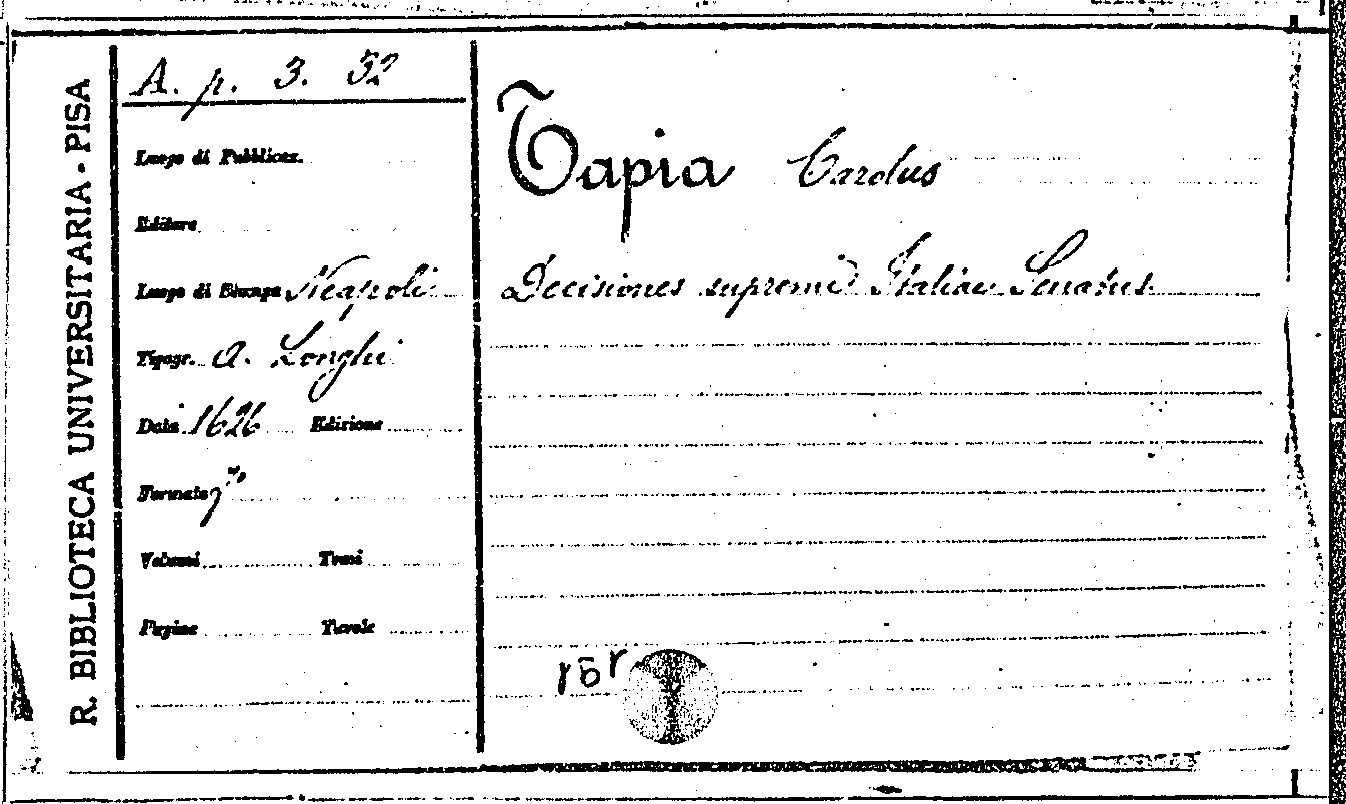 R. BIBLIOTECA UNIVERSITARIA - PISA
A. p. 3. 52
Luogo di Pubblicaz.
Editore
Luogo di Stampa Neapoli
Tipogr. A. Longhi
Data 1626 Edizione
Formato
Volumi Tomi
Pagine Tavole
Tapia Carolus
Decisiones supremi Italiae Senatus.